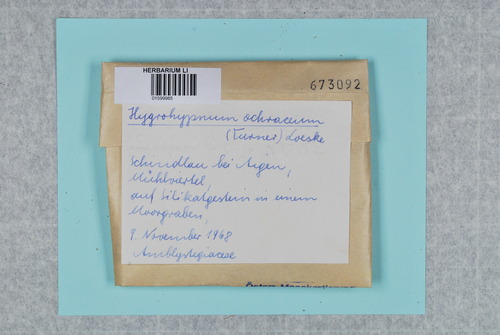 HERBARIUM LI
673092
Hygrohypnum ochraceum
(Turner) Loeske
bei Aigen,
Mühlviertel,
auf Silikatgestein in einem
Moorgraben,
9. November 1968
Amblystegiaceae